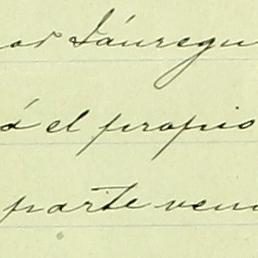 or Jáuregu
á el propio
parte ven